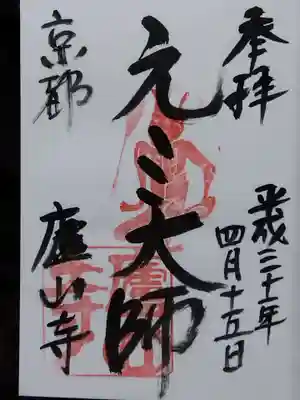 奉拝
平成三十一年
四月十五日
元三大師
京都
廬山寺